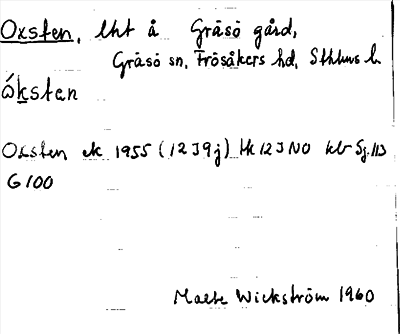 Oxsten, lht å Gräsö gård,
Gräsö sn, Frösåkers hd, Sthlms l.
ώksten
Oxsten ek 1955 (12J9j) Hk 12J NO kbr Sj. 113
G100
Malte Wickström 1960